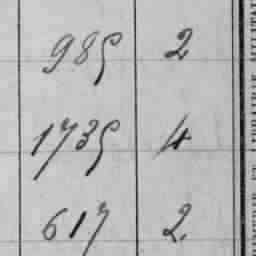 985 2
1735 4
617 2